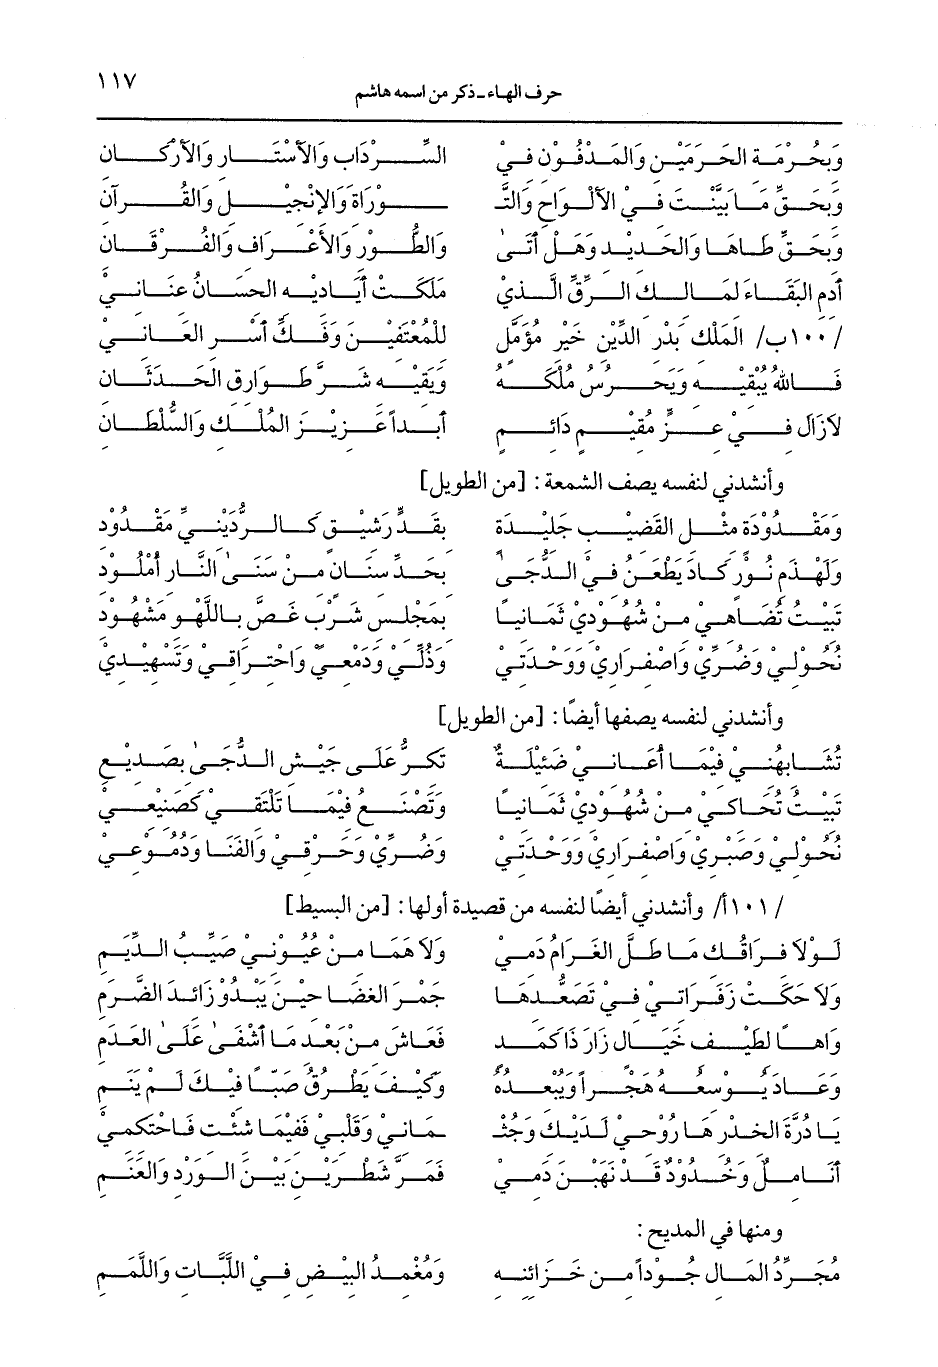 حرف الهاء ـ ذكر من اسمه هاشم ١١٧
وَبِحُرْمَةِ الحَرَمَيْنِ وَالمَدْفُونِ فِيْ السِّرْدَابِ وَالأَسْتَارِ وَالأَرْكَانِ
وَبِحَقِّ مَا بَيَّنْتَ فِيْ الأَلْوَاحِ وَالتَّـ ـوْرَاةِ وَالإِنْجِيْلِ وَالقُرآنِ
وَبِحَقِّ طَاهَا وَالحَدِيْدِ وَهَلْ أَتَىٰ وَالطُّوْرِ وَالأَعْرَافِ وَالفُرْقَانِ
أَدِمِ البَقَاءَ لِمَالِكِ الرِّقِّ الَّذِي مَلَكَتْ أَيَادِيْهِ الحِسَانُ عِنَانِيْ
/١٠٠ب/ المَلْكِ بَدْرِ الدِّيْنِ خَيْرِ مُؤَمَّلٍ لِلْمُعْتَفِيْنَ وَفَكِّ أَسْرِ العَانِيْ
فَاللهُ يُبْقِيْهِ وَيَحْرُسُ مُلْكَهُ وَيَقِيْهِ شَرَّ طَوَارِقِ الحَدَثَانِ
لاَزَالَ فِيْ عِزٍّ مُقِيْمٍ دَائِمٍ أَبَداً عَزِيْزَ المُلْكِ وَالسُّلْطَانِ
وأنشدني لنفسه يصف الشمعة: [من الطويل]
وَمَقْدُوْدَةٍ مِثْلِ القَضِيْبِ جَلِيْدَةٍ بِقَدٍّ رَشِيْقٍ كَالرُّدَيْنِيِّ مَقْدُوْدِ
وَلَهْذَمِ نُوْرٍ كَادَ يَطْعَنُ فِي الدُّجَىٰ بِحَدِّ سِنَانٍ مِنْ سَنَىٰ النَّارِ أُمْلُوْدِ
تَبِيْتُ تُضَاهِي مِنْ شُهُوْدِي ثَمَانِياً بِمَجْلِسِ شَرْبٍ غَصَّ بِاللَّهْوِ مَشْهُوْدِ
نُحُوْلِي وَضُرِّي وَاصْفِرَارِي وَوَحْدَتِي وَذُلِّي وَدَمْعِي وَاحْتِرَاقِي وَتَسْهِيْدِي
وأنشدني لنفسه يصفها أيضاً: [من الطويل]
تُشَابِهُنِيْ فِيْمَا أُعَانِيْ ضَئِيْلَةٌ تَكُرُّ عَلَى جَيْشِ الدُّجَىٰ بِصَدِيْعِ
تَبِيْتُ تُحَاكِيْ مِنْ شُهُوْدِي ثَمَانِياً وَتَصْنَعُ فِيْمَا تَلْتَقِيْ كَصَنِيْعِيْ
نُحُوْلِي وَصَبْرِي وَاصْفِرَارِي وَوَحْدَتِي وَضُرِّي وَحَرْقِي وَالفَنَا وَدُمُوْعِيْ
/١٠١أ/ وأنشدني أيضاً لنفسه من قصيدة أولها: [من البسيط]
لَوْلاَ فِرَاقُكِ مَا طَلَّ الغَرَامُ دَمِيْ وَلاَ هَمَا مِنْ عُيُوْنِيْ صَيِّبُ الدِّيَمِ
وَلاَ حَكَتْ زَفَرَاتِيْ فِيْ تَصَعُّدِهَا جَمْرَ الغَضَا حِيْنَ يَبْدُوْ زَائِدَ الضَّرَمِ
وَاهاً لِطَيْفِ خَيَالٍ زَارَ ذَا كَمَدٍ فَعَاشَ مِنْ بَعْدِ مَا أَشْفَىٰ عَلَىٰ العَدَمِ
وَعَادَ يُوْسِعُهُ هَجْراً وَيُبْعِدُهُ وَكَيْفَ يَطْرُقُ صَبّاً فِيْكِ لَمْ يَنَمِ
يَا دُرَّةَ الخِدْرِ هَا رُوْحِي لَدَيْكِ وَجُثْـ ـمَانِي وَقَلْبِي فَفِيْمَا شِئْتِ فَاحْتَكِمِيْ
أَنَامِلٌ وَخُدُودٌ قَدْ نَهَبْنَ دَمِيْ فَمَرَّ شَطْرَيْنِ بَيْنَ الوَرْدِ وَالعَنَمِ
ومنها في المديح:
مُجَرِّدُ المَالِ جُوْداً مِنْ خَزَائِنِهِ وَمُغْمِدُ البِيْضِ فِيْ اللَّبَّاتِ وَاللِّمَمِ